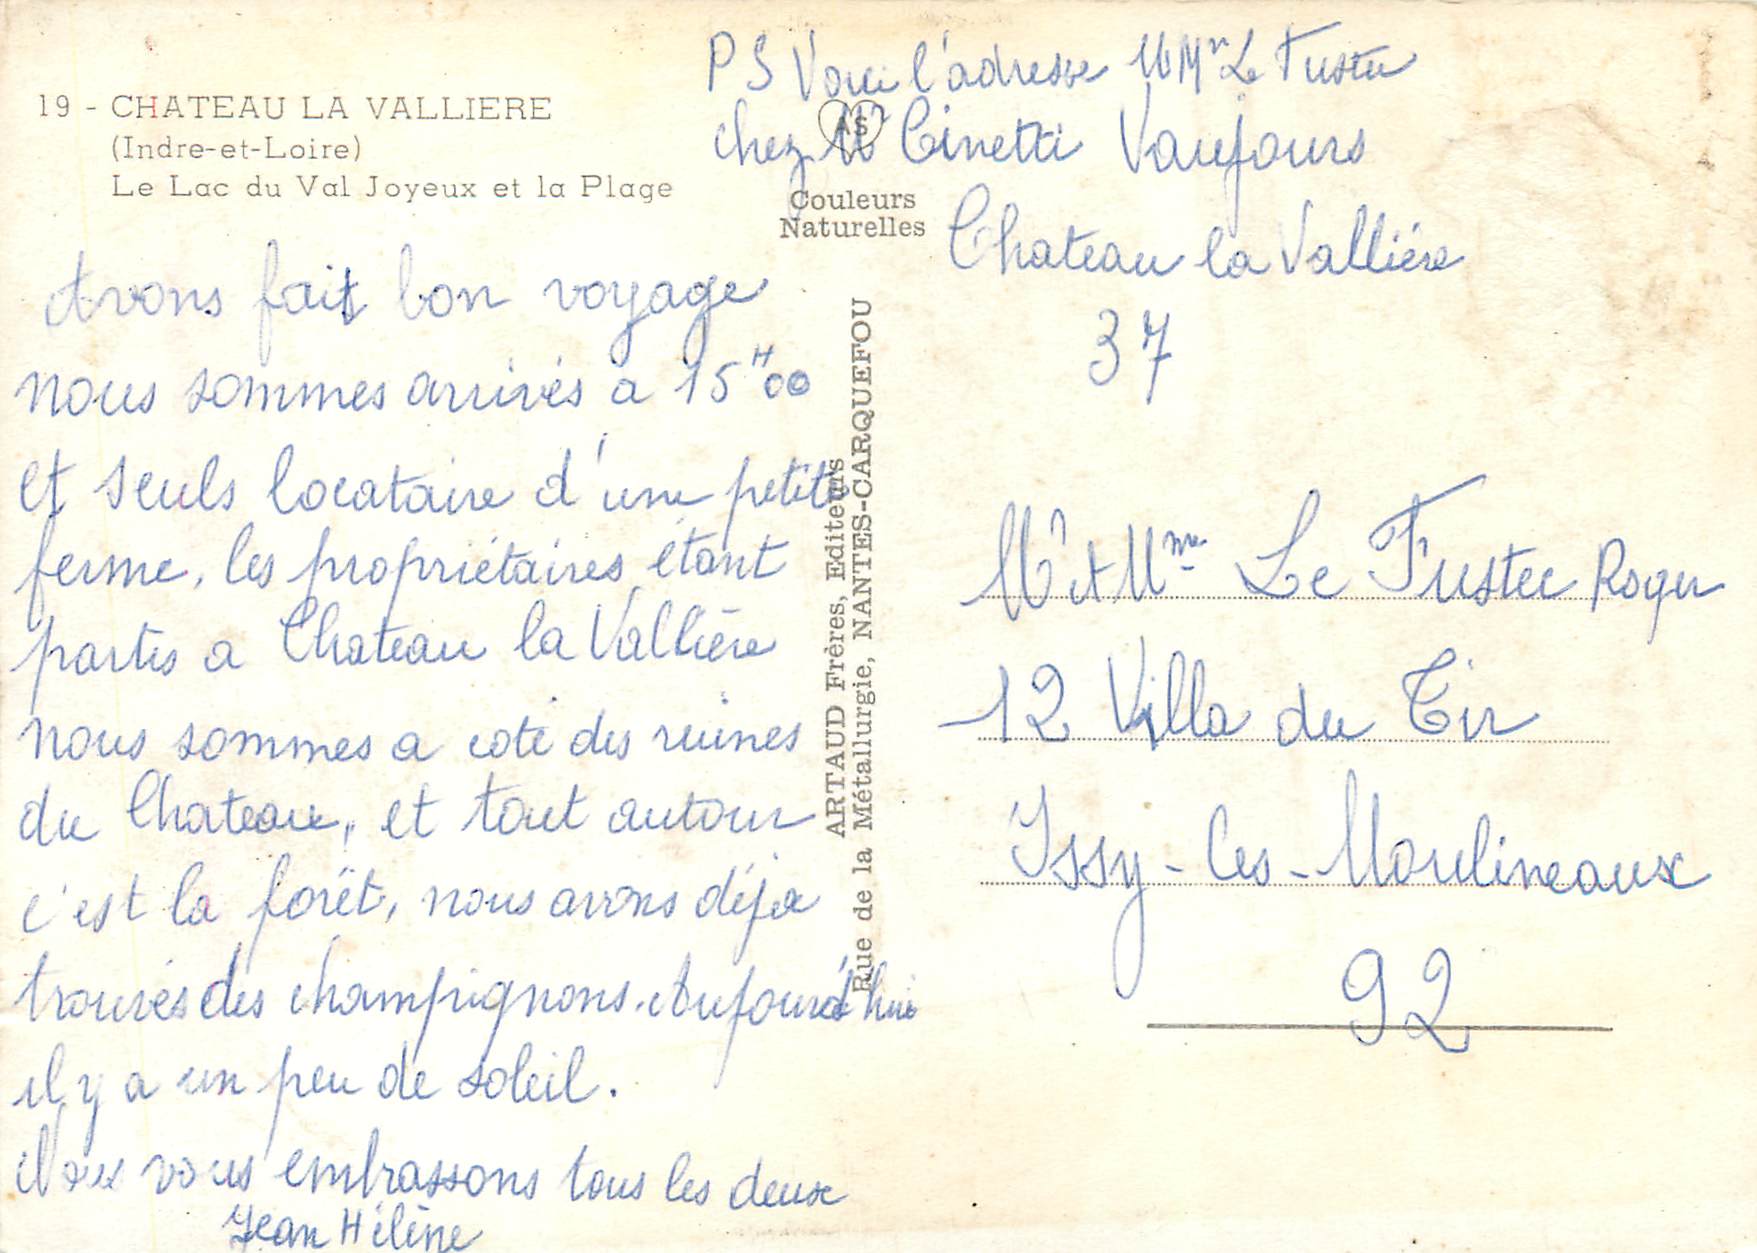 19 - CHATEAU LA VALLIERE
(Indre-et-Loire)
Le Lac du Val Joyeux et la Plage
Avons fait bon voyage
nous sommes arrivés a 15H00
et seuls locataire d'une petite
ferme, les propriétaires étant
partis a Chateau la Vallière
nous sommes a coté des ruines
du Chateau, et tout autour
c'est la forêt, nous avons déja
trouvés des champignons. Aujourd'hui
il y a un peu de soleil.
Nous vous embrassons tous les deux
Jean Hélène
AS
Couleurs
Naturelles
ARTAUD Frères, Editeurs
Rue de la Métallurgie, NANTES-CARQUEFOU
PS Voici l'adresse M Mr Le Fustec
chez Mr Cinetti Vaujours
Chateau la Vallière
37
Mr et Mme Le Fustec Roger
12 Villa du Tir
Issy-les-Moulineaux
92